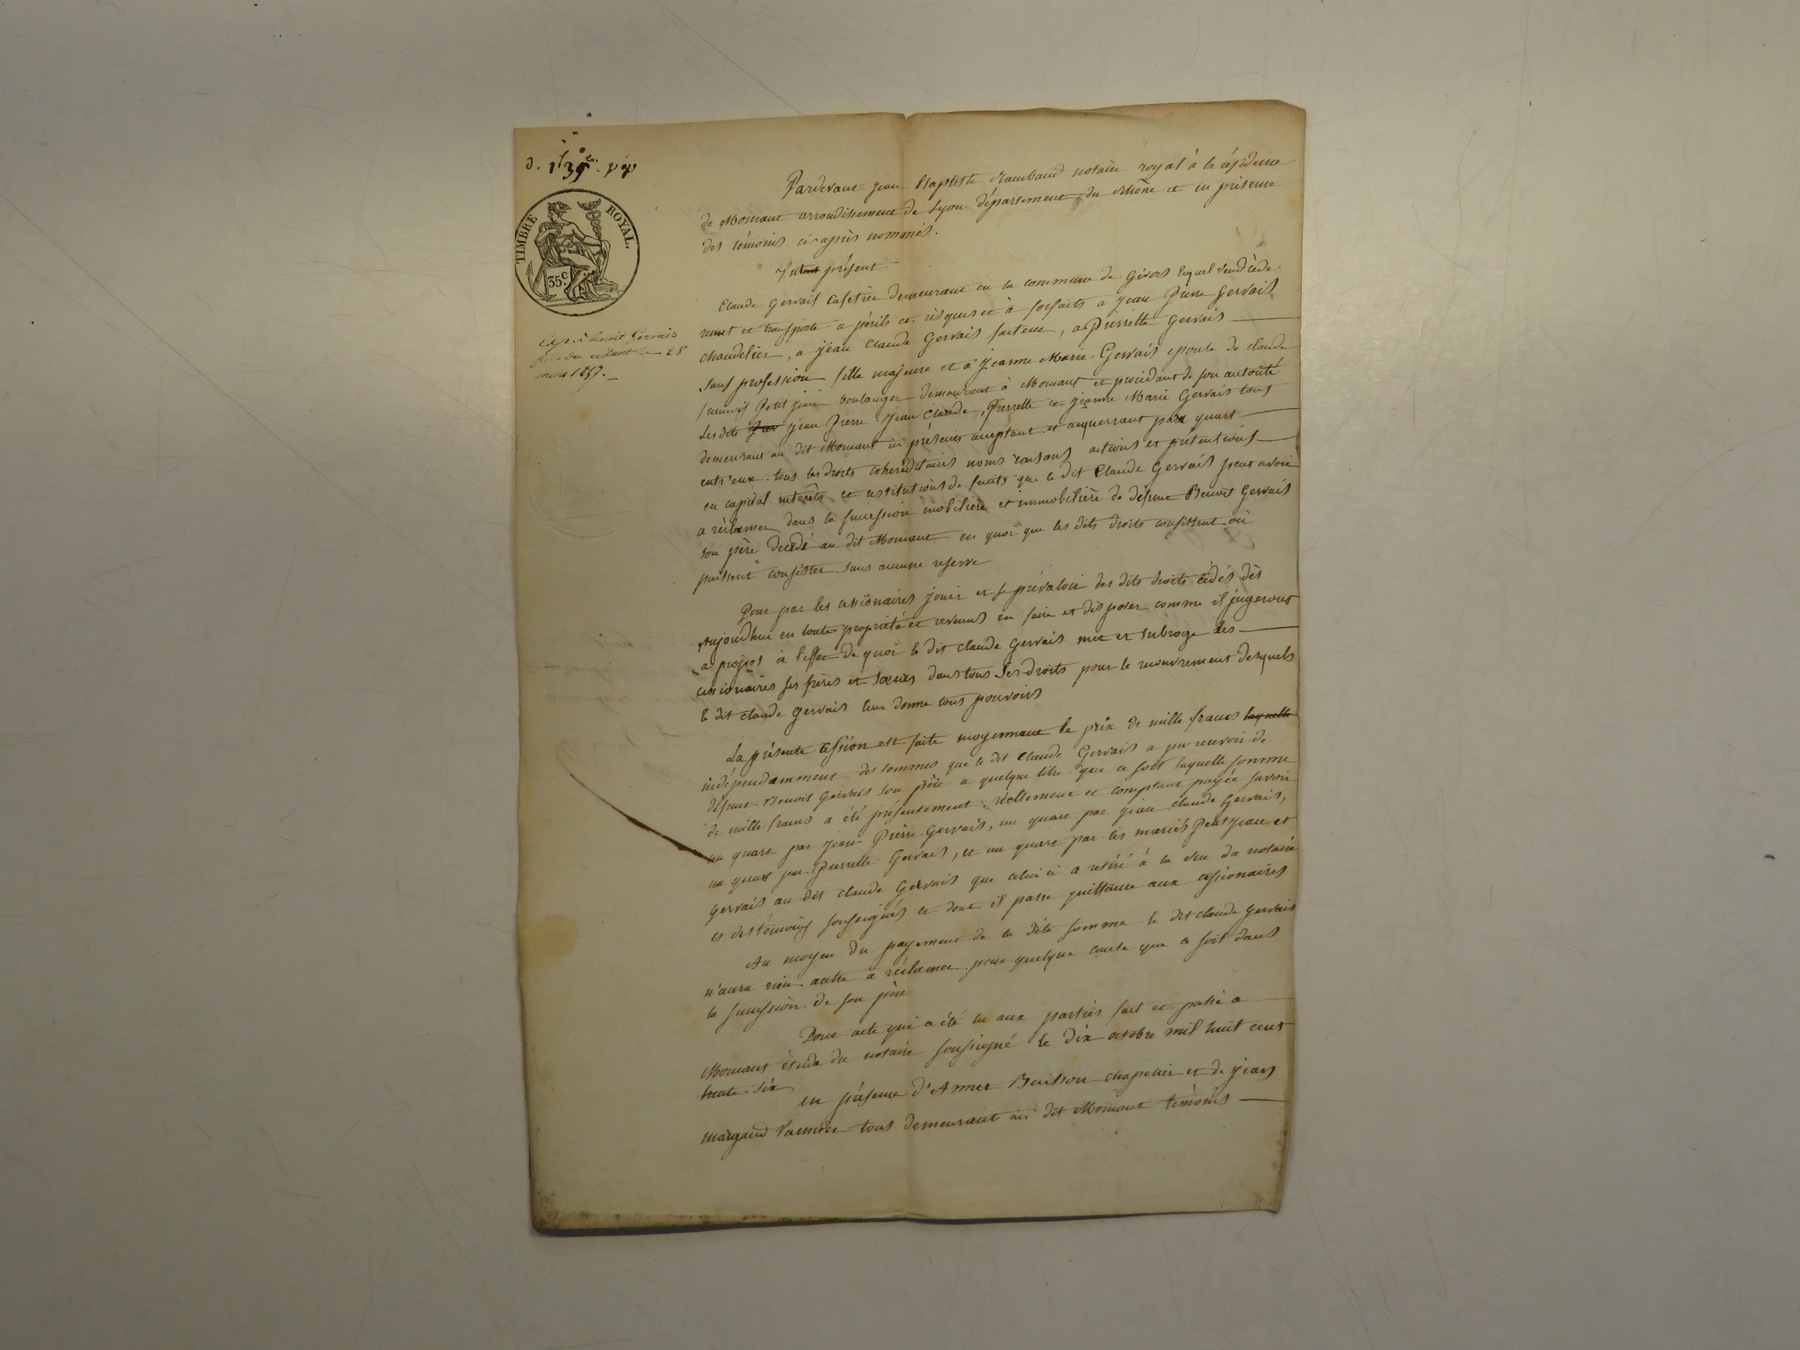 TIMBRE ROYAL.
35 c
Exp. à Benoit Gervais
28
mars 1837.
Pardevant jean Baptiste Rambaud notaire royal à la résidence
de Mornant arrondissement de Lyon département du Rhône et en présence
des témoins ci-après nommés.
présent
Claude Gervais Cafetier demeurant en la commune de Givors lequel vend cède
remet et transporte a périls et risques et à forfaits a jean Pierre Gervais
chandelier, a jean Claude Gervais facteur, a Pierrette Gervais
sans profession fille majeure et a jeanne Marie Gervais epouse de claude
françois Petit jean boulanger demeurant à Mornant et procédant de son autorité
Lesdits jean Pierre jean Claude, Pierrette et jeanne Marie Gervais tous
demeurant au dit Mornant ici présents acceptant et acquerrant par quart
entr'eux tous les droits cohereditaires noms raisons actions et pretentions
en capital intérêts et restitutions de fruits que le dit Claude Gervais peut avoir
a réclamer dans la succession mobilière et immobilière de défunt Benoit Gervais
son père decedé au dit Mornant en quoi que les dits droits consistent où
puissent consister sans aucune reserve
Pour par les cessionaires jouir et se prévaloir des dits droits cédés dès
aujourdhui en toute propriété et revenus en faire et disposer comme il jugeront
a propos à l'effet de quoi le dit claude Gervais met et subroge les
cessionaires ses frères et soeurs dans tous ses droits pour le recouvrement desquels
le dit claude Gervais leur donne tous pouvoirs
La présente cession est faite moyennant le prix de mille francs laquelle
indépendamment des sommes que le dit Claude Gervais a pu recevoir de
défunt Benoit Gervais son père a quelque titre que ce soit laquelle somme
de mille francs a été présentement réellement et comptant payée savoir
un quart par jean Pierre Gervais, un quart par jean claude Gervais,
un quart par Pierrette Gervais, et un quart par les mariés Petit jean et
Gervais au dit claude Gervais que celui ci a retiré à la vue du notaire
et des témoins soussignés et dont il passe quittance aux cessionaires
Au moyen du payement de la dite somme le dit claude Gervais
n'aura rien autre a réclamer pour quelque cause que ce soit dans
la succession de son père
Dont acte qui a été lu aux parties fait et passé a
Mornant étude du notaire soussigné le dix octobre mil huit cent
trente six en présence d'Annet Buisson chapelier et de jean
margand tous demeurant au dit Mornant témoins